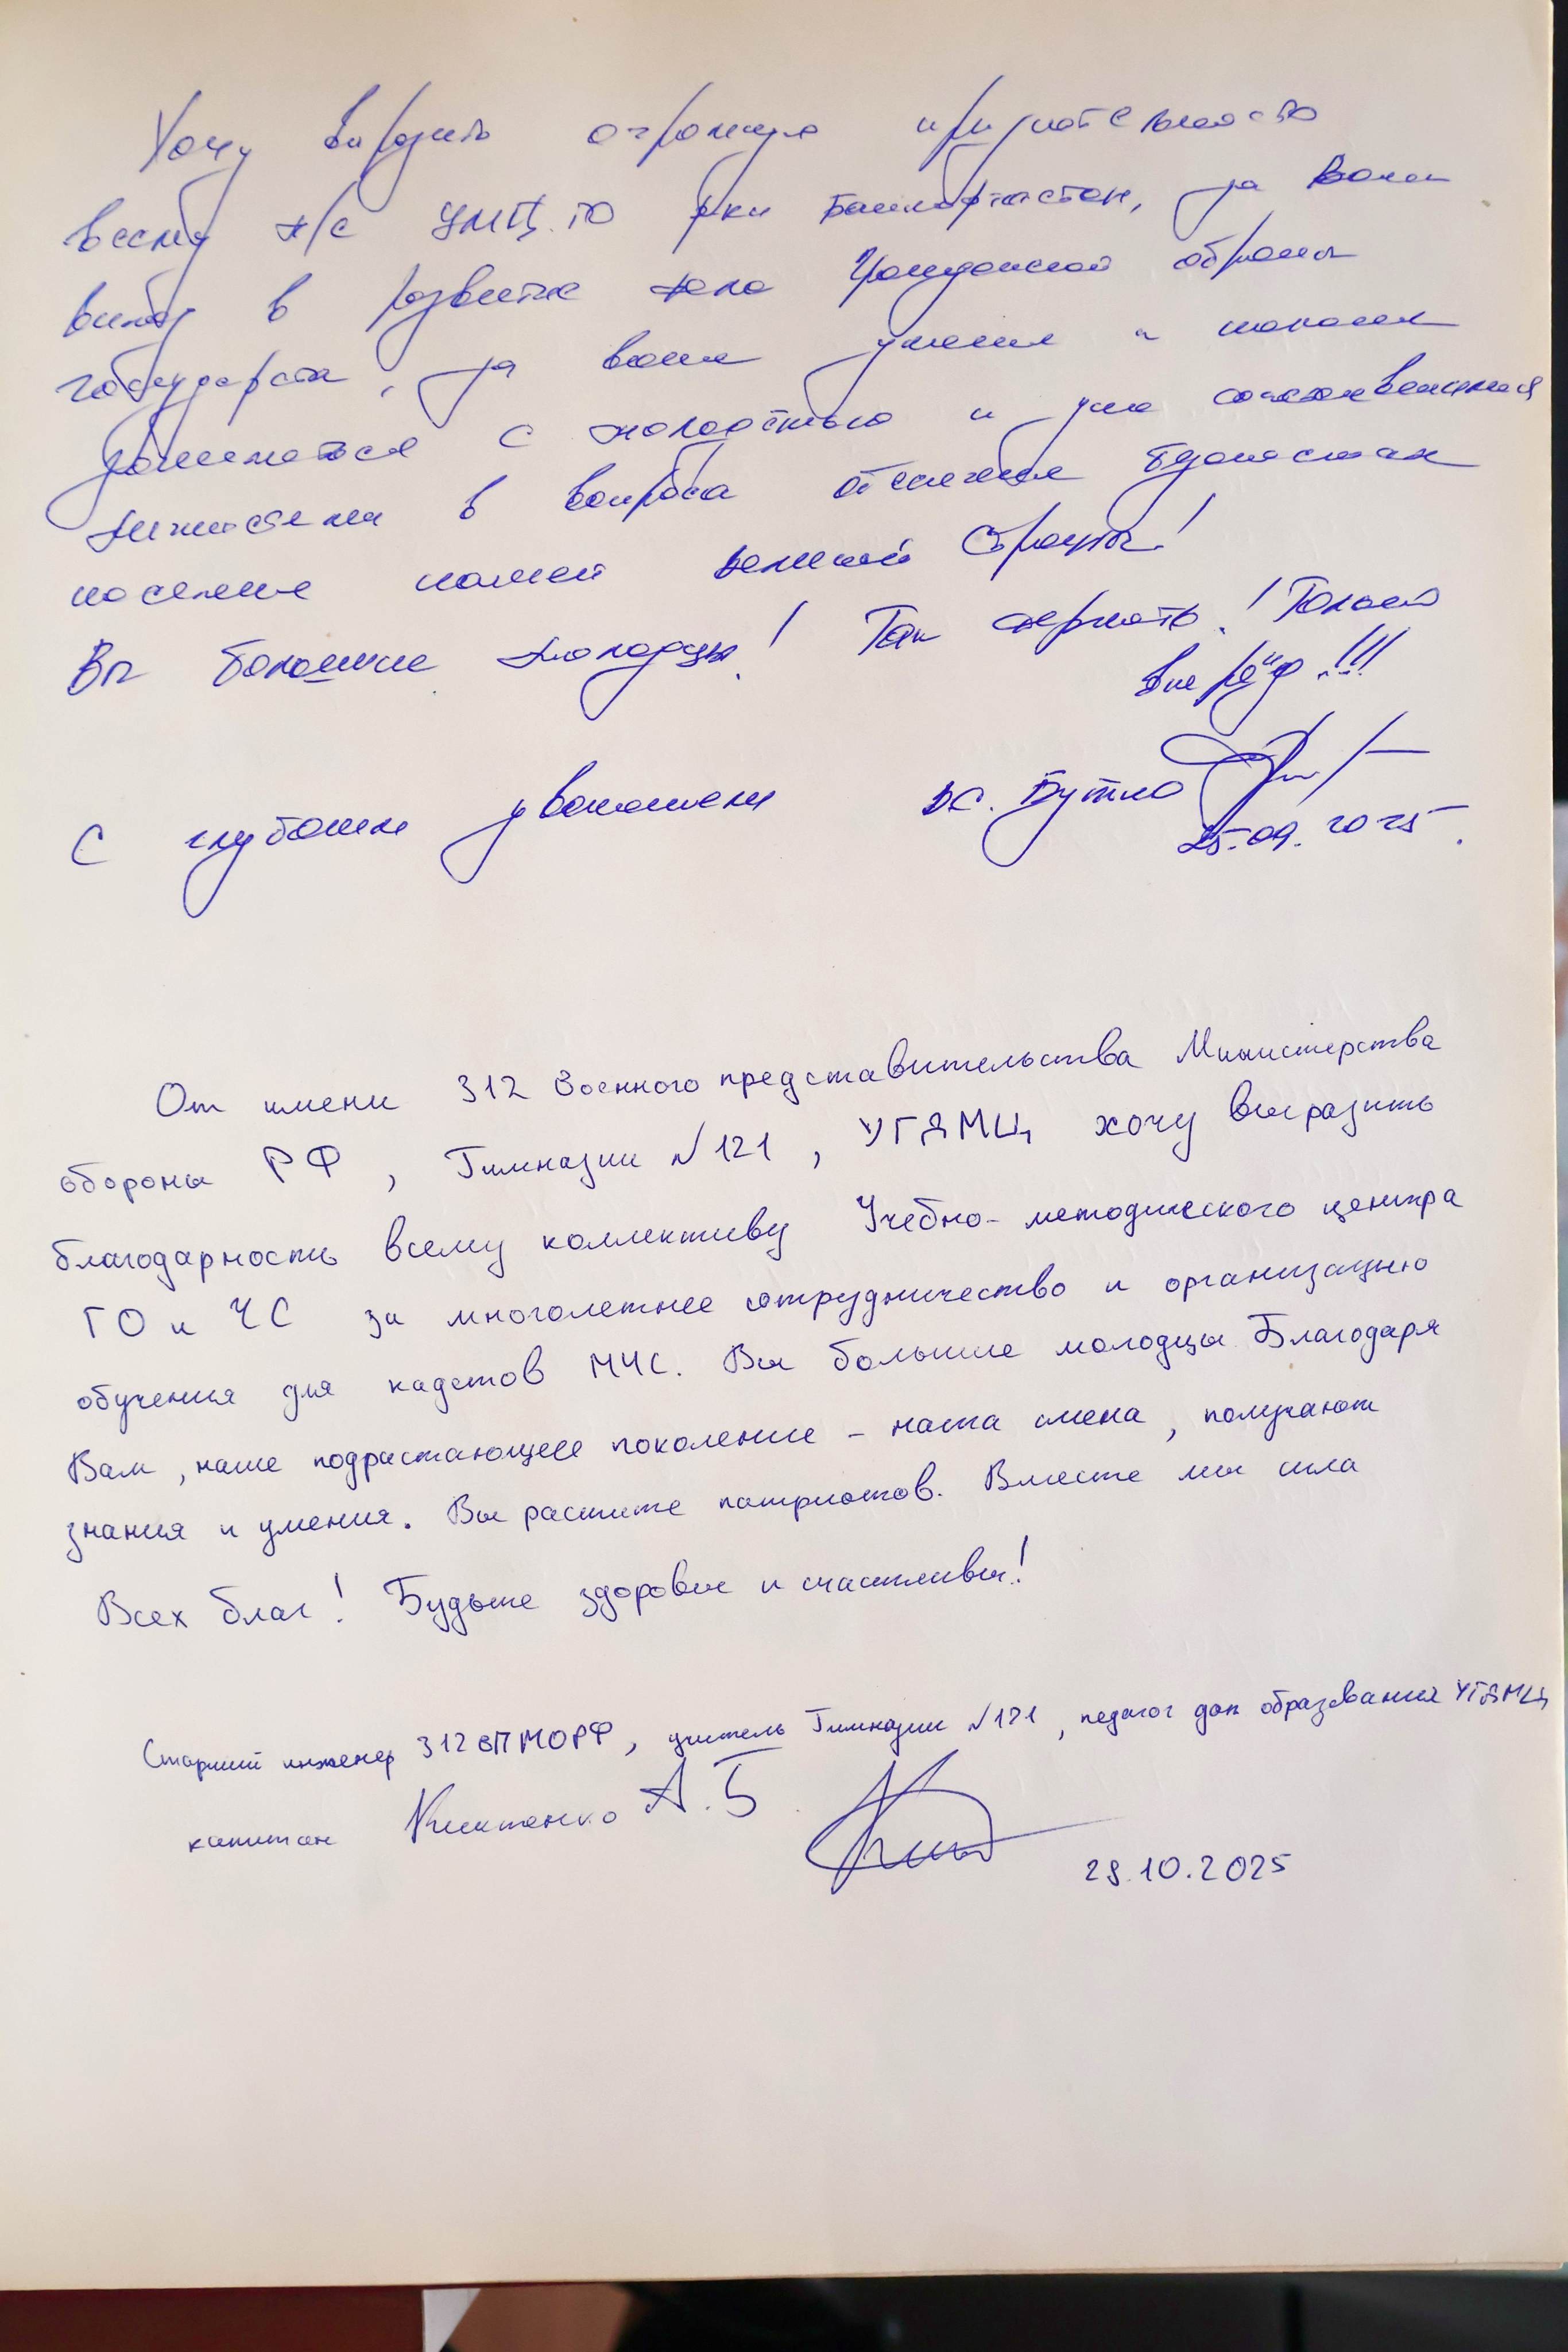 Хочу выразить огромную признательность
всему л/с УМЦ ГО р-ки Башкортостан, за Ваш
вклад в развитие дела Гражданской обороны
государства, за ваши умения и
заниматься с молодостью и
в вопросах обеспечения безопасности
населения нашей великой Страны!
Вы большие молодцы! Так держать! Только
вперёд!!!
С глубоким уважением
25.09.2025
От имени 312 Военного представительства Министерства
обороны РФ, Гимназии №121, УГДМЦ хочу выразить
благодарность всему коллективу Учебно-методического центра
ГО и ЧС за многолетнее сотрудничество и организацию
обучения для кадетов МЧС. Вы большие молодцы. Благодаря
Вам, наше подрастающее поколение - наша смена, получают
знания и умения. Вы растите патриотов. Вместе мы сила
Всех благ! Будьте здоровы и счастливы!
Старший инженер 312 ВП МО РФ, учитель Гимназии №121, педагог доп образования УГДМЦ
капитан А.Б
29.10.2025